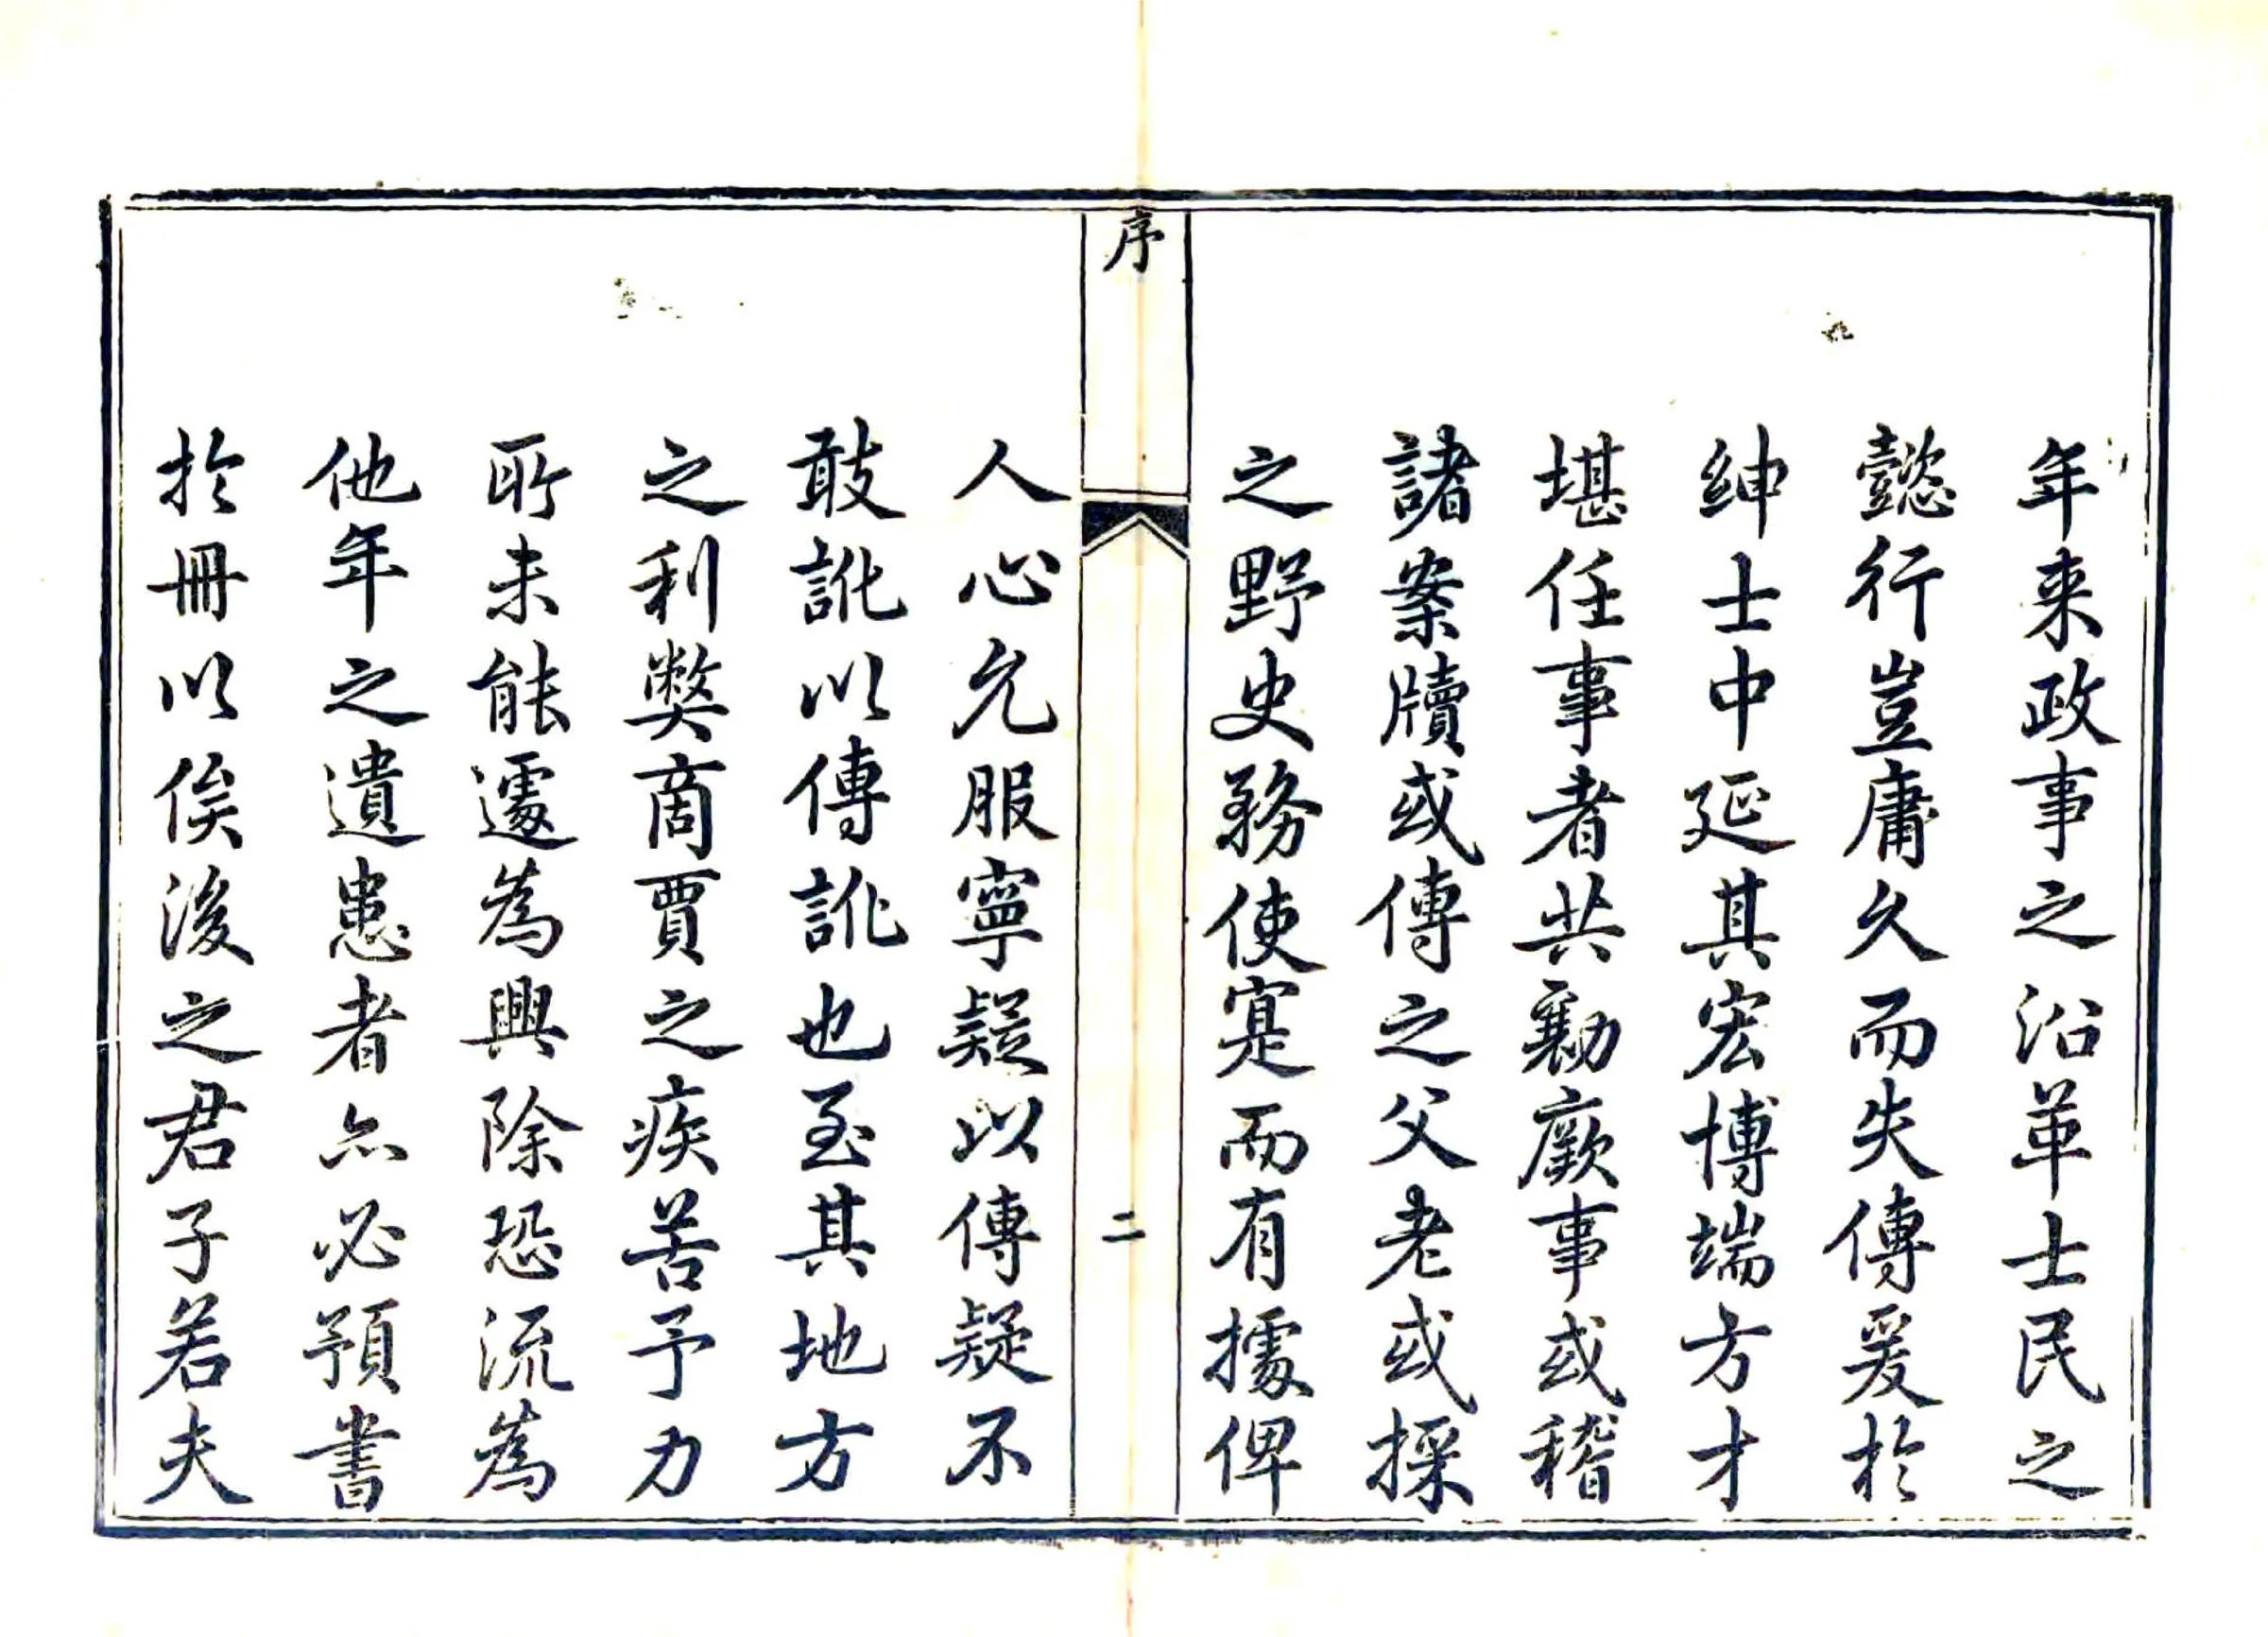 年来政事之沿革士民之
懿行豈庸久而失傳爰於
紳士中延其宏博端方才
堪任事者共勷厥事或稽
諸案牘或傳之父老或採
之野史務使寔而有據俾
序
二
人心允服寧疑以傳疑不
敢訛以傳訛也至其地方
之利獘商賈之疾苦予力
所未能遽為興除恐流為
他年之遺患者亦必預書
於冊以俟後之君子若夫